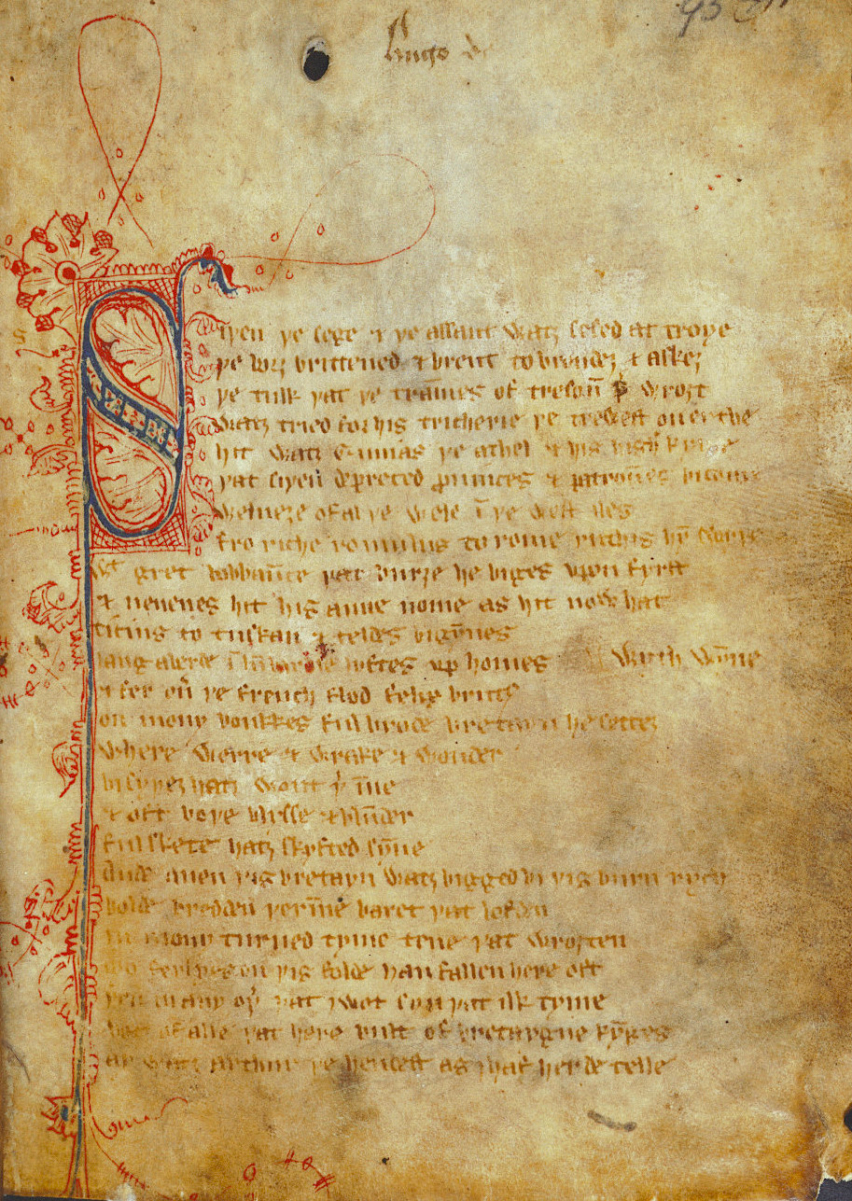 Hugo de
Siþen þe sege & þe assaut watz sesed at troye
þe borȝ brittened & brent to brondez & askez
þe tulk þat þe tra̅mes of tresou̅ þ̛ wroȝt
watz tried for his tricherie þe trewest on erthe
hit watz Ennias þe athel & his highe kynde
þat siþen depreced ꝓuinces & patrou̅es bicome
welneȝe of al þe wele i̅ þe west iles
fro riche romulus to rome ricchis hy̅ swyþe
wt gret bobbau̅ce þat burȝe he biges vpon fyrst
& neuenes hit his aune nome as hit now hat
ticius to tuskan & teldes bigy̅nes
langaberde i̅ lumbardie lyftes vp homes wyth wy̅ne
& fer ou̅ þe french flod felix brutꝰ
on mony bonkkes ful brode bretayn he settez
where werre & wrake & wonder
bi syþez hatz wont þ̛ i̅ne
& oft boþe blysse & blu̅der
ful skete hatz skyfted sy̅ne
Ande quen þis bretayn watz bigged bi þis burn rych
bolde bredden þeri̅ne baret þat lofden
in mony turned tyme tene þat wroȝten
mo ferlyes on þis folde han fallen here oft
þen in any oþ̛ þat i wot syn þat ilk tyme
bot of alle þat here bult of bretaygne ky̅ges
ay watz arthur þe hendest as i haf herde telle